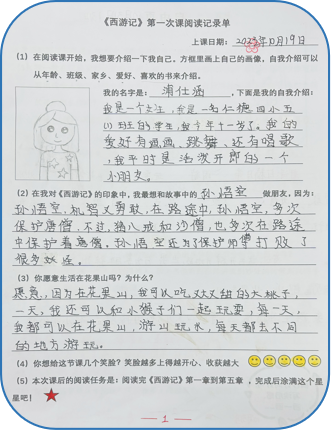 《西游记》第一次课阅读记录单
上课日期：2023年10月19日
(1) 在阅读课开始，我想要介绍一下我自己。方框里画上自己的画像，自我介绍可以
从年龄、班级、家乡、爱好、喜欢的书来介绍。
我的名字是：仕涵，下面是我的自我介绍：
我是一个女生，我是一名仁德四小五
(1)班的学生，我今年十一岁了。我的
爱好有画画、跳舞、还有唱歌
，我平时是活泼开郎的一个
小朋友。
(2) 在我对《西游记》的印象中，我最想和故事中的 孙悟空 做朋友，因为：
孙悟空，机智又勇敢，在路途中，孙悟空，多次
保护唐僧，不过，猪八戒和沙僧，也多次在路途
中保护着唐僧。孙悟空还为了保护师傅打败了
很多妖怪。
(3) 你愿意生活在花果山吗？为什么？
愿意，因为在花果山，我可以吃又大又甜的大桃子，
一天，我还可以和小猴子们一起玩耍，每一天，
我都可以在花果山，游山玩水，每天都去不同
的地方游玩。
(4) 你想给这节课几个笑脸？笑脸越多上得越开心、收获越大
(5) 本次课后的阅读任务是：阅读完《西游记》第一章到第五章，完成后涂满这个星
星吧！
1